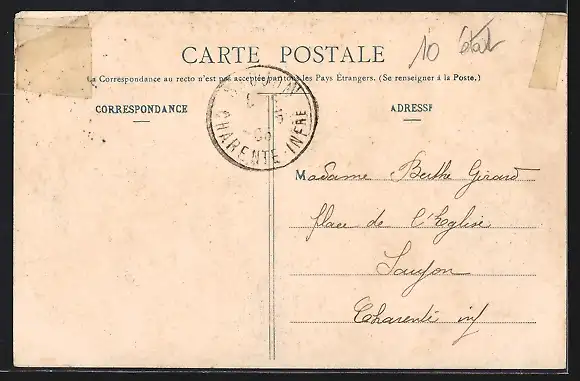 10 état
CARTE POSTALE
La Correspondance au recto n'est pas acceptée par tous les Pays Étrangers. (Se renseigner à la Poste.)
CORRESPONDANCE
ADRESSE
CHARENTE-INFRE
Madame Berthe Girard
place de l'Eglise
Saujon
Charente inf